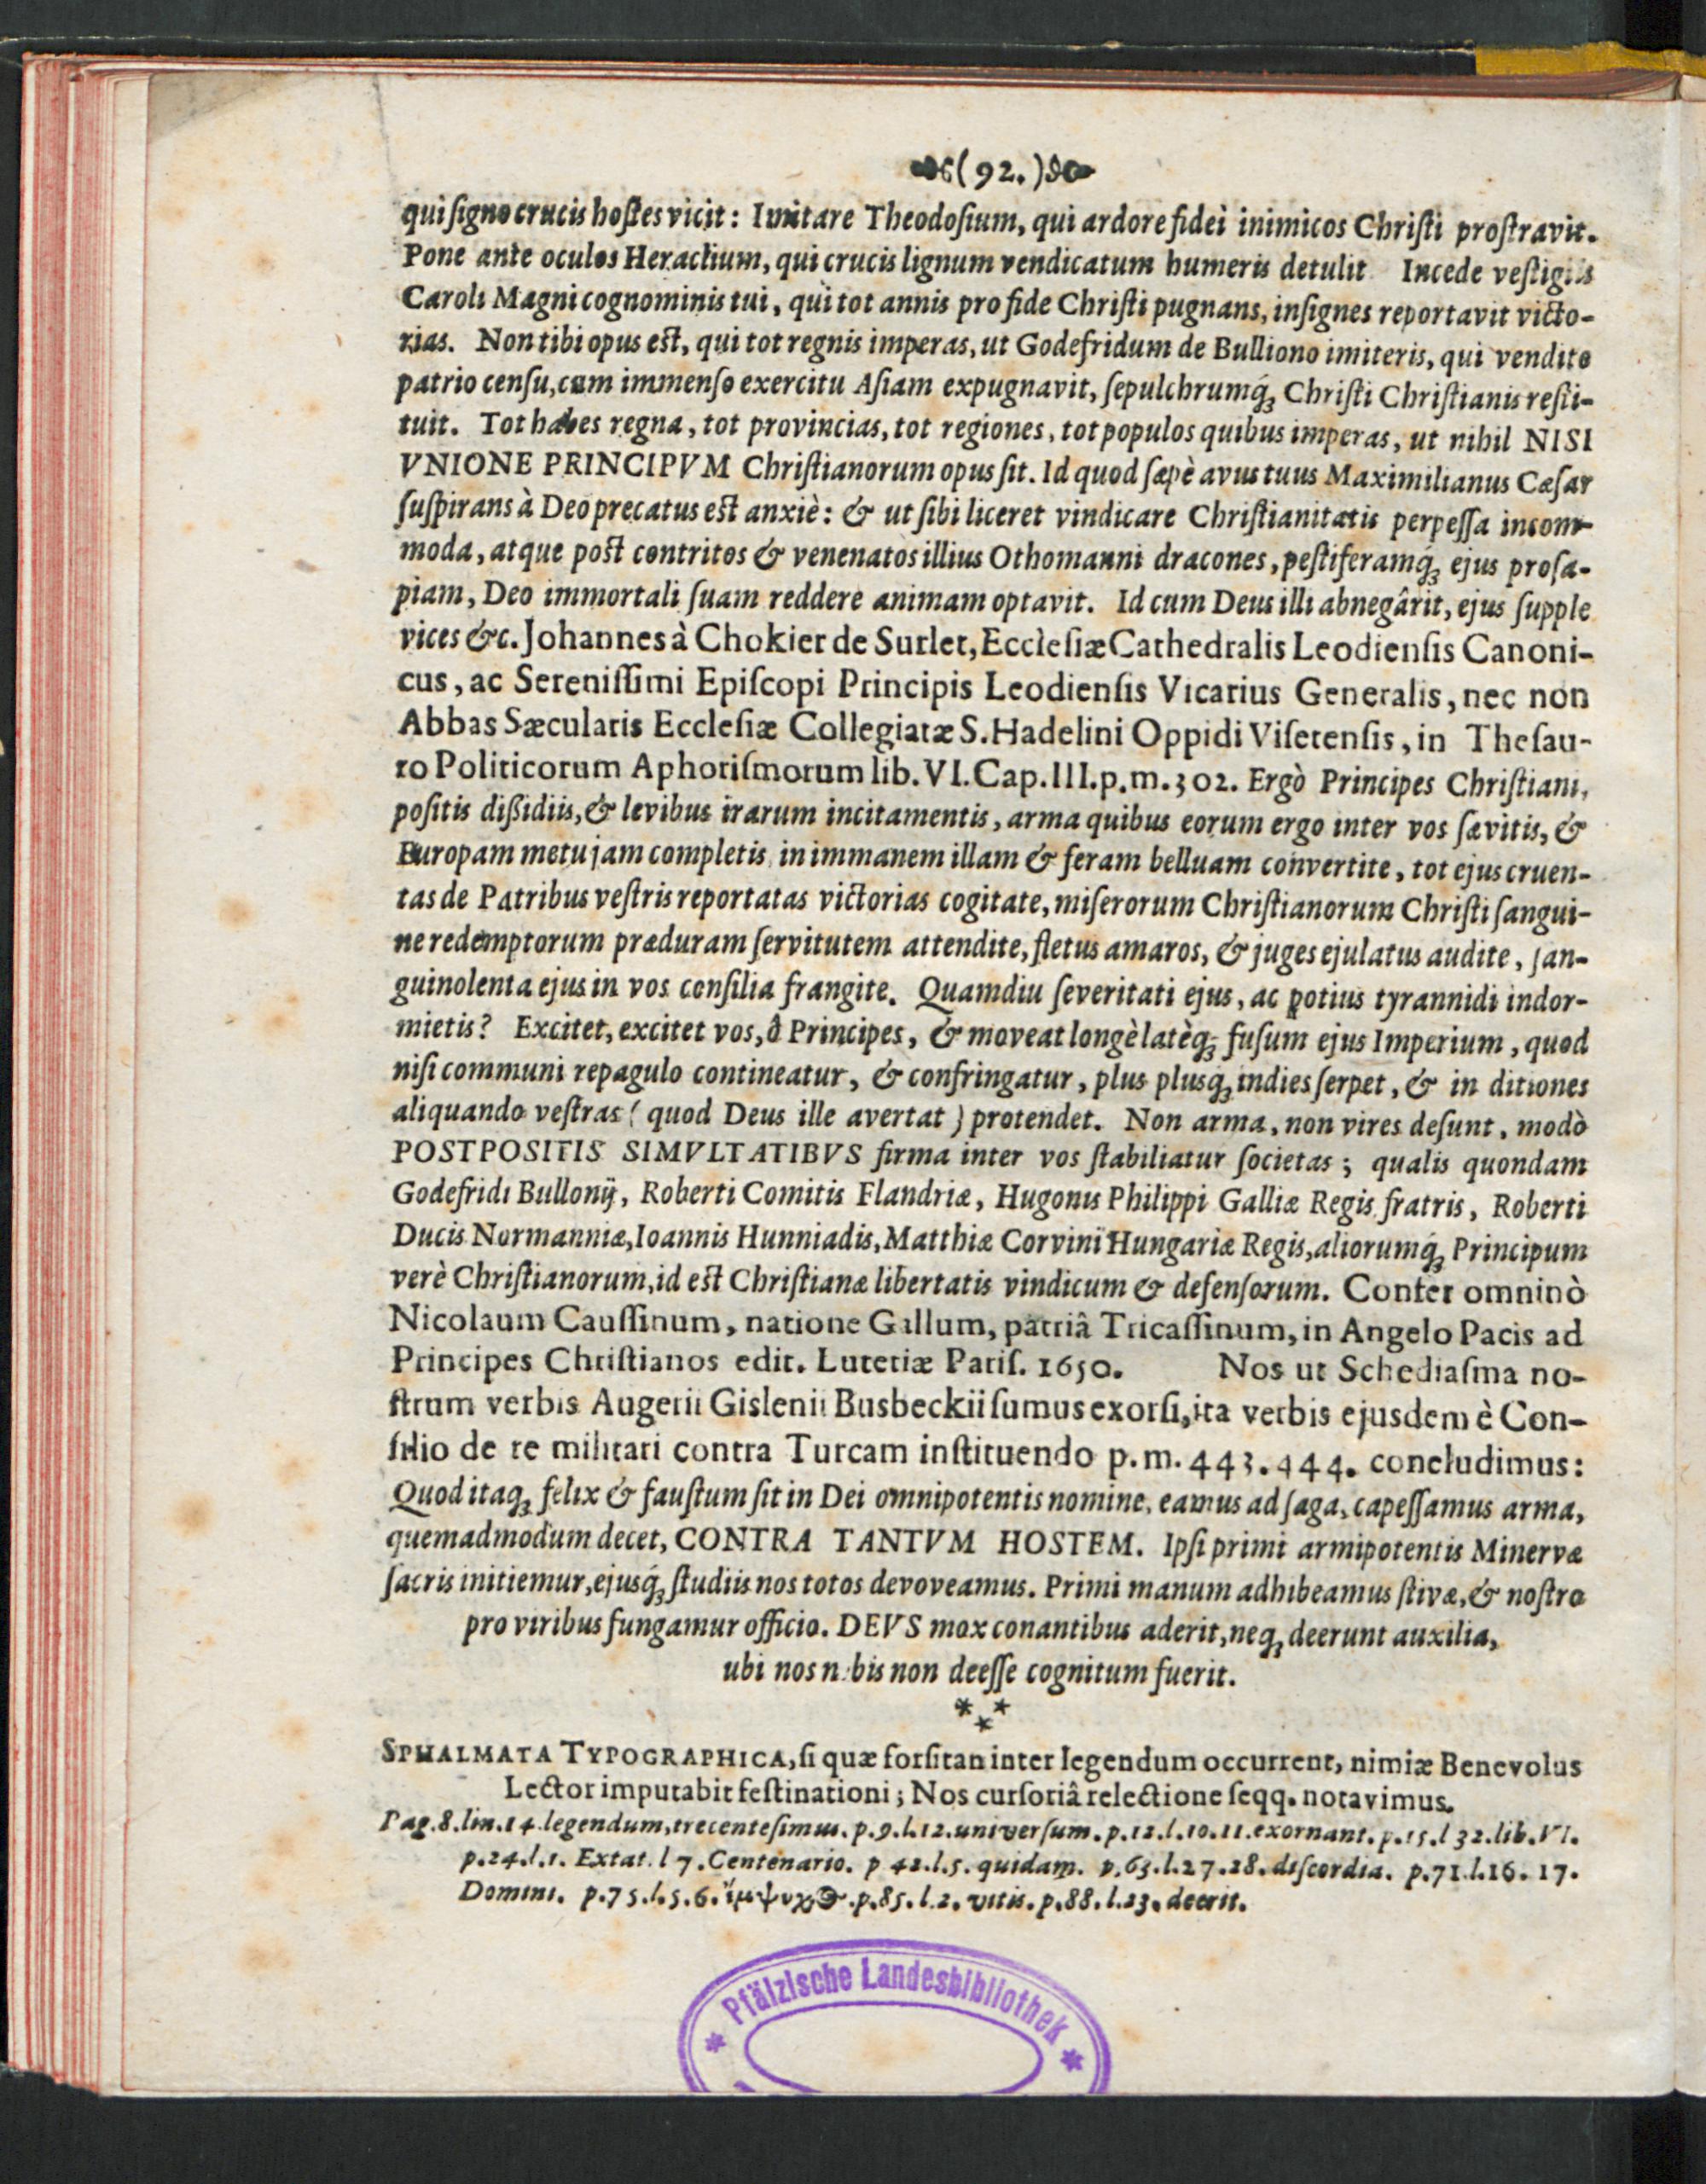 (92.)
qui ſigno crucis hoſtes vicit: Imitare Theodoſium, qui ardore fidei inimicos Chriſti proſtravit.
Pone ante oculos Heraclium, qui crucis lignum vendicatum humeris detulit Incede veſtigiis
Caroli Magni cognominis tui, qui tot annis pro fide Chriſti pugnans, inſignes reportavit victo-
rias. Non tibi opus eſt, qui tot regnis imperas, ut Godefridum de Bulliono imiteris, qui vendito
patrio cenſu, cum immenſo exercitu Aſiam expugnavit, ſepulchrumq́; Chriſti Chriſtianis reſti-
tuit. Tot habes regna, tot provincias, tot regiones, tot populos quibus imperas, ut nihil NISI
VNIONE PRINCIPVM Chriſtianorum opus ſit. Id quod ſæpè avus tuus Maximilianus Cæſar
ſuſpirans à Deo precatus eſt anxiè: & ut ſibi liceret vindicare Chriſtianitatis perpeſſa incom-
moda, atque poſt contritos & venenatos illius Othomanni dracones, peſtiferamq́; ejus proſa-
piam, Deo immortali ſuam reddere animam optavit. Id cum Deus illi abnegârit, ejus ſupple
vices &c. Johannes à Chokier de Surlet, Eccleſiæ Cathedralis Leodienſis Canoni-
cus, ac Sereniſſimi Epiſcopi Principis Leodienſis Vicarius Generalis, nec non
Abbas Sæcularis Eccleſiæ Collegiatæ S. Hadelini Oppidi Viſetenſis, in Theſau-
ro Politicorum Aphoriſmorum lib. VI. Cap. III. p. m. 302. Ergò Principes Chriſtiani,
poſitis diſſidiis, & levibus irarum incitamentis, arma quibus eorum ergo inter vos ſævitis, &
Europam metu jam completis in immanem illam & feram belluam convertite, tot ejus cruen-
tas de Patribus veſtris reportatas victorias cogitate, miſerorum Chriſtianorum Chriſti ſangui-
ne redemptorum præduram ſervitutem attendite, fletus amaros, & juges ejulatus audite, ſan-
guinolenta ejus in vos conſilia frangite. Quamdiu ſeveritati ejus, ac potius tyrannidi indor-
mietis? Excitet, excitet vos, ô Principes, & moveat longè latèq; fuſum ejus Imperium, quod
niſi communi repagulo contineatur, & confringatur, plus plusq́; indies ſerpet, & in ditiones
aliquando veſtras (quod Deus ille avertat) protendet. Non arma, non vires deſunt, modò
POSTPOSITIS SIMVLTATIBVS firma inter vos ſtabiliatur ſocietas; qualis quondam
Godefridi Bullonij, Roberti Comitis Flandriæ, Hugonis Philippi Galliæ Regis fratris, Roberti
Ducis Normanniæ, Ioannis Hunniadis, Matthiæ Corvini Hungariæ Regis, aliorumq́; Principum
verè Chriſtianorum, id eſt Chriſtianæ libertatis vindicum & defenſorum. Confer omninò
Nicolaum Cauſſinum, natione Gallum, patriâ Tricaſſinum, in Angelo Pacis ad
Principes Chriſtianos edit. Lutetiæ Pariſ. 1650. Nos ut Schediaſma no-
ſtrum verbis Augerii Gislenii Busbeckii ſumus exorſi, ita verbis ejusdem è Con-
ſilio de re militari contra Turcam inſtituendo p. m. 443. 444. concludimus:
Quod itaq; felix & fauſtum ſit in Dei omnipotentis nomine, eamus ad ſaga, capeſſamus arma,
quemadmodum decet, CONTRA TANTVM HOSTEM. Ipſi primi armipotentis Minervæ
ſacris initiemur, ejusq́; ſtudiis nos totos devoveamus. Primi manum adhibeamus ſtivæ, & noſtro
pro viribus fungamur officio. DEVS mox conantibus aderit, neq; deerunt auxilia,
ubi nos nobis non deeſſe cognitum fuerit.
* * *
SPHALMATA TYPOGRAPHICA, ſi quæ forſitan inter legendum occurrent, nimiæ Benevolus
Lector imputabit feſtinationi; Nos curſoriâ relectione ſeqq. notavimus.
Pag. 8. lin. 14 legendum, trecenteſimus. p. 9. l. 12. univerſum. p. 12. l. 10. 11. exornant. p. 15. l 32. lib. VI.
p. 24. l. 1. Extat. l 7. Centenario. p 42. l. 5. quidam. p. 63. l. 27. 28. diſcordia. p. 71. l. 16. 17.
Domini. p. 75. l. 5. 6. ἔμψυχος. p. 85. l. 2. vitis. p. 88. l. 23. deerit.
* Pfälzische Landesbibliothek *